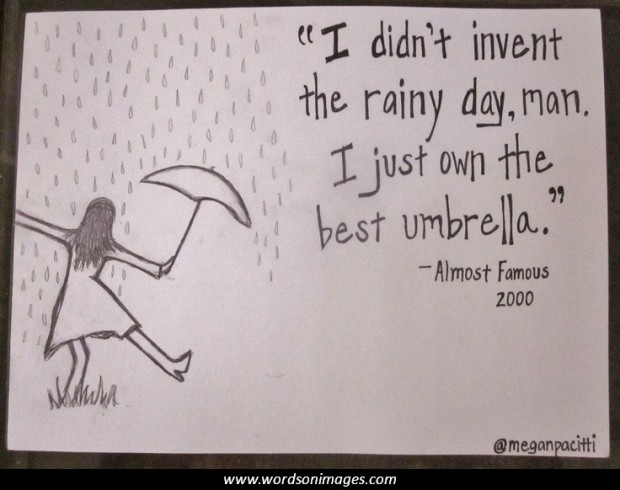 “I didn't invent
the rainy day, man.
I just own the
best umbrella.”
–Almost Famous
2000
@meganpacitti
www.wordsonimages.com